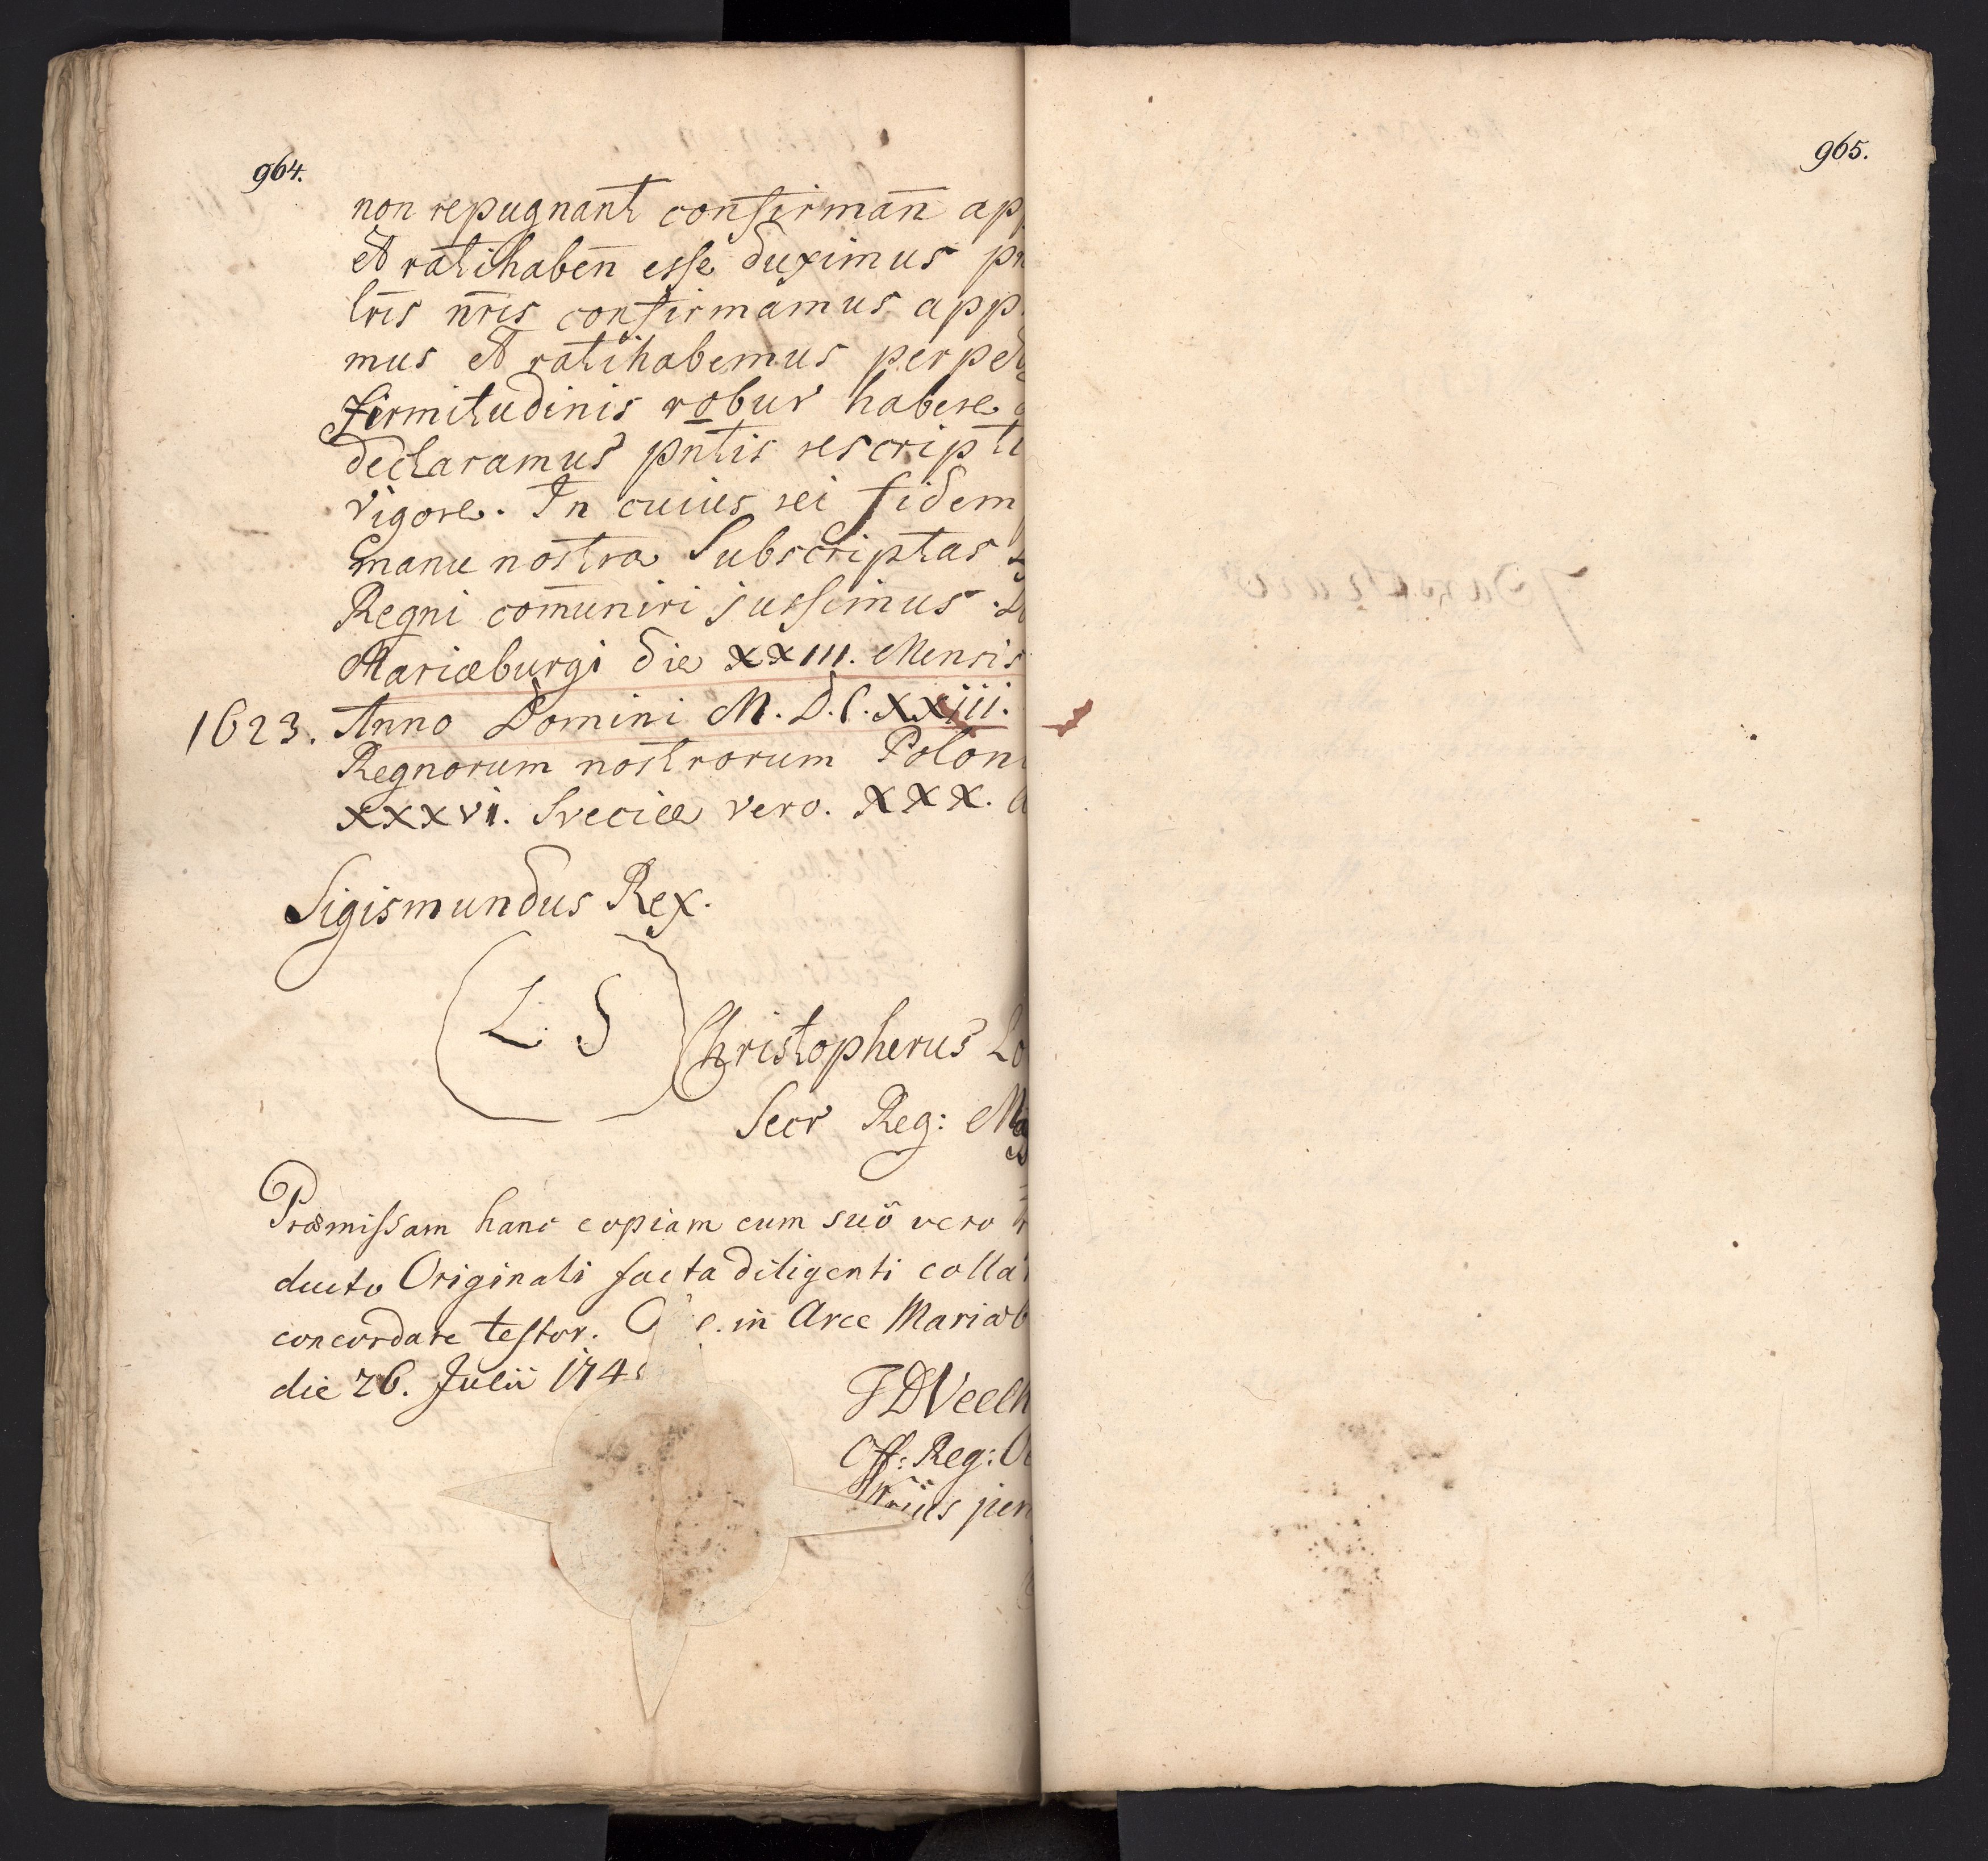 964.
non repugnant confirman̄ ap
et ratihaben̄ esse duximus
lr̄is nr̄is confirmamus app
mus et ratihabemus perpet
firmitudinis robur habere
declaramus pn̄tis rescripti
vigore. In cuius rei fidem
manu nostra Subscriptas
Regni com̄uniri jussimus.
Mariæburgi die XXIII. Mensis
1623. Anno Domini M.D.C.XXiii.
Regnorum nostrorum Polon
XXXVI. Sveciæ vero. XXX.
Sigismundus Rex.
L. S
Christopherus
Secr Reg: Ma
Præmissam hanc copiam cum suô vero
ducto Originali facta diligenti colla
concordare testor. in Arce Mariæb
die 26. Julii 174
JDVeelh
Off: Reg:
rius
965.